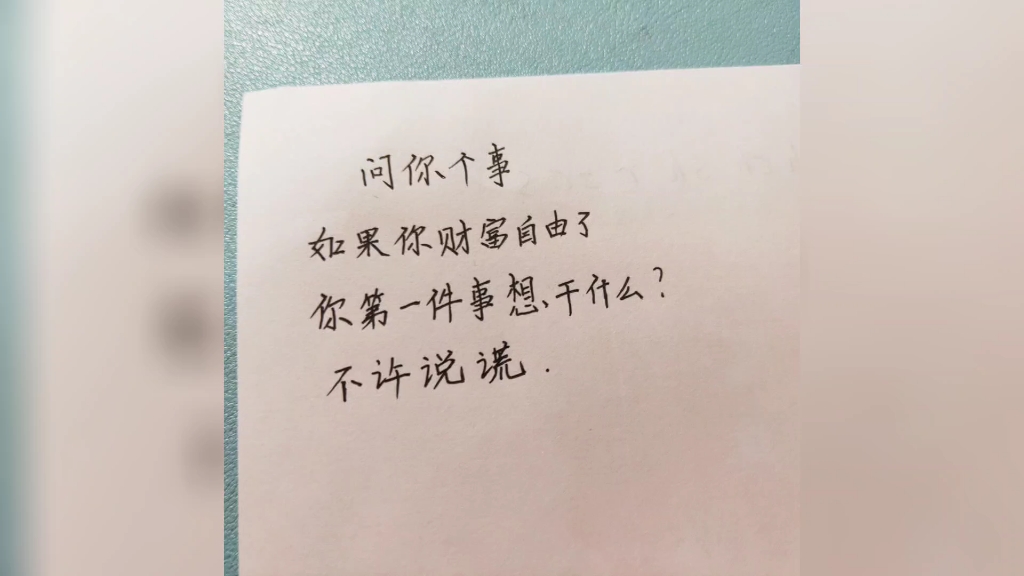 问你个事
如果你财富自由了
你第一件事想干什么？
不许说谎.